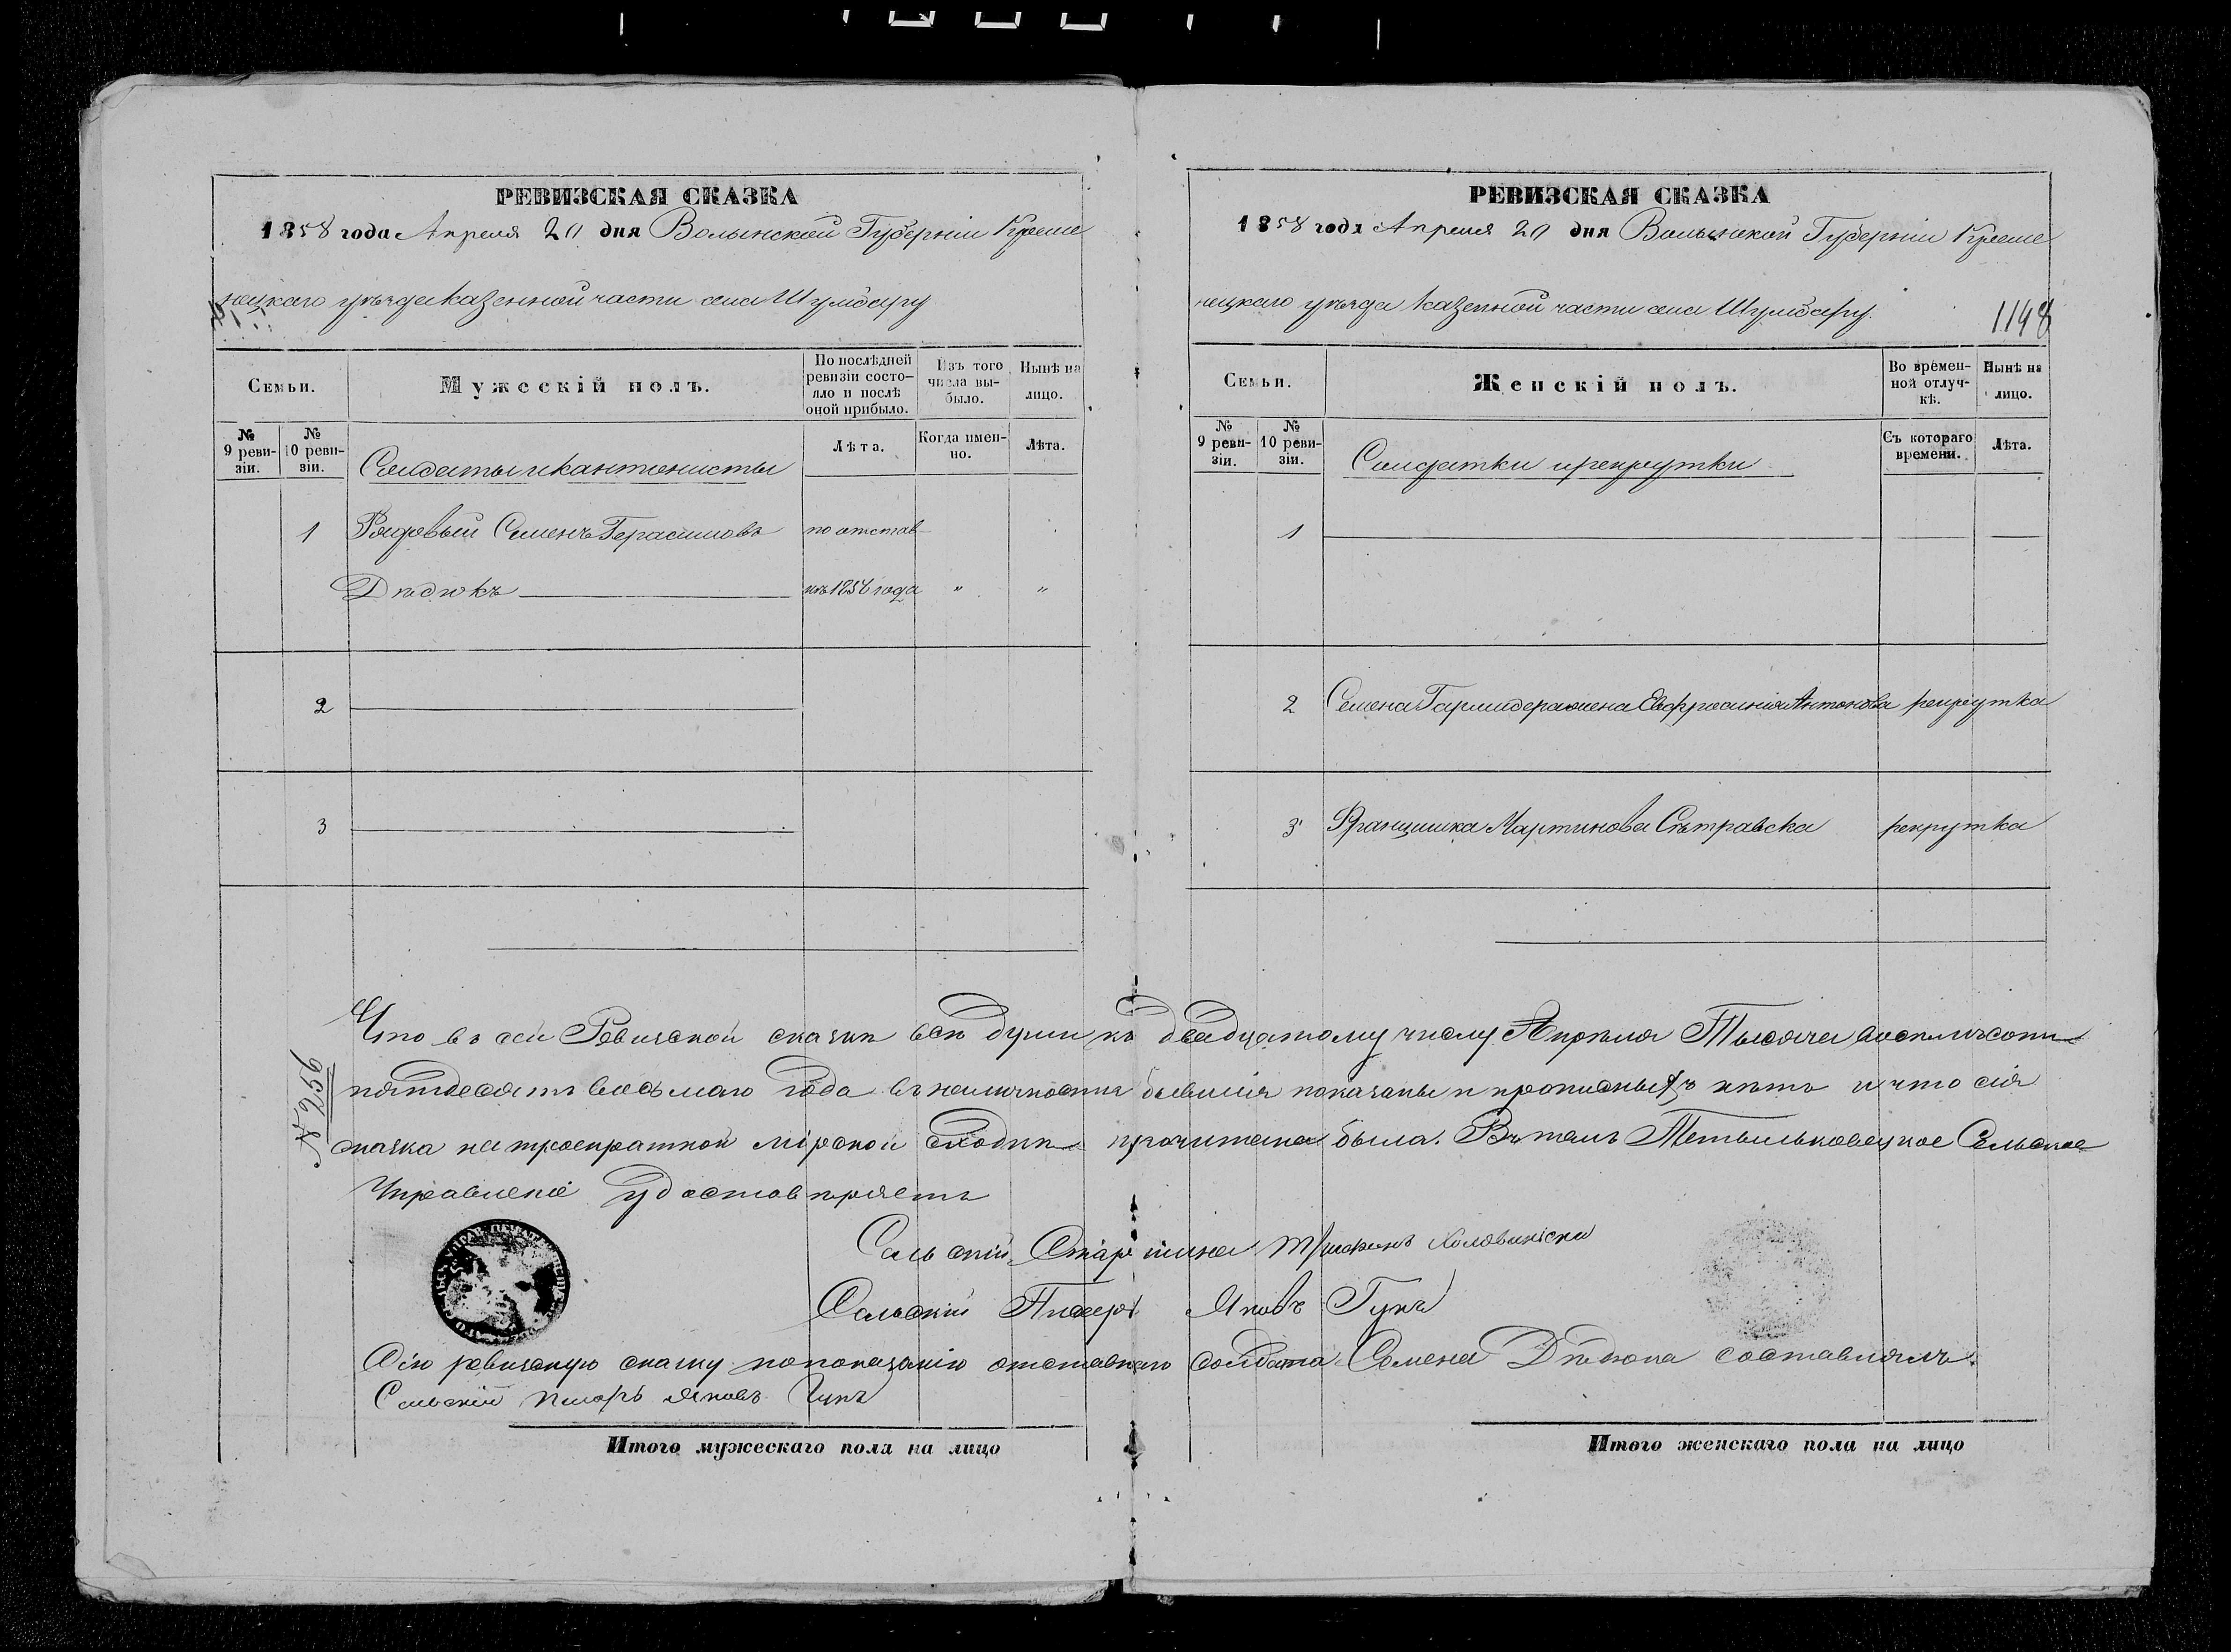 РЕВИЗСКАЯ СКАЗКА
1858 года Апреля 20 дня Волынской Губерніи Креме
нецкаго уѣзда казенной части села Шумбару
Семьи.
Мужескій полъ.
По послѣдней ревизіи состояло и послѣ оной прибыло.
Изъ того числа выбыло.
Нынѣ на лицо.
№ 9 ревизіи.
№ 10 ревизіи.
Солдаты и кантонисты
Лѣта.
Когда именно.
Лѣта.
1 Рядовый Семенъ Герасимовъ по отстав
Дѣдюкъ къ 1856 года " "
2
3
РЕВИЗСКАЯ СКАЗКА
1858 года Апреля 20 дня Волынской Губерніи Креме
нецкаго уѣзда казенной части села Шумбару.
1148
Семьи.
Женскій полъ.
Во временной отлучкѣ.
Нынѣ на лицо.
№ 9 ревизіи.
№ 10 ревизіи.
Солдатки и рекрутки
Съ котораго времени.
Лѣта.
1
2 Семена жена Евфросинія Антонова рекрутка
3 Францишка Мартинова рекрутка
№ 256
Что въ сей Ревизской сказкѣ всѣ души къ двадцатому числу Апрѣля Тысяча восемьсотъ
пятдесятъ восьмаго года въ наличности бывшія показаны и прописныхъ нѣтъ и что сія
сказка на троекратной мірской сходкѣ прочитана была. Въ томъ Тетыльковецкое Сельское
Управленіе удостовѣряетъ
Сельскій Старшина
Сельскій Писарь Яковъ Гукъ
Сію ревизскую сказку по показанію отставнаго солдата Семена Дѣдюка составлялъ.
Сельскій писарь Яковъ Гукъ
Итого мужескаго пола на лицо
Итого женскаго пола на лицо